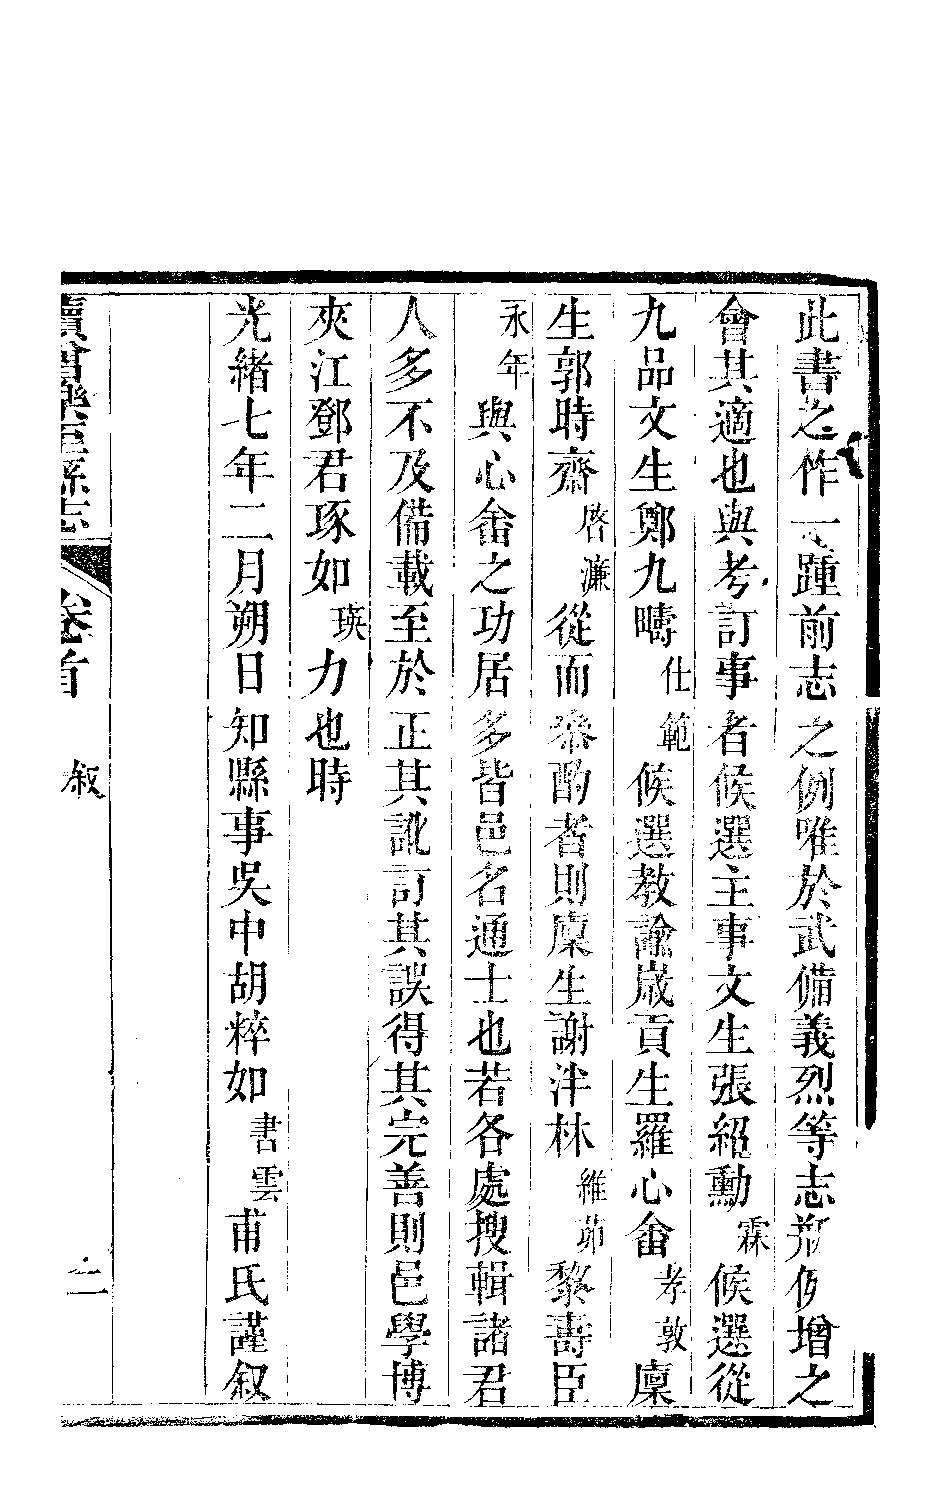 此書之作一踵前志之例唯於武備義烈等志刱例增之
會其適也與考訂事者候選主事文生張紹勳霖候選從
九品文生鄭九疇仕範候選教諭歲貢生羅心畬孝敦廩
生郭時齋啓濂從而叅酌者則廩生謝泮林維茆黎壽臣
永年與心畬之功居多皆邑名通士也若各處搜輯諸君
人多不及備載至於正其訛訂其誤得其完善則邑學博
夾江鄧君琢如瑛力也時
光緒七年二月朔日知縣事吳中胡粹如書雲甫氏謹叙
續曾樂至縣志 卷首 叙 二